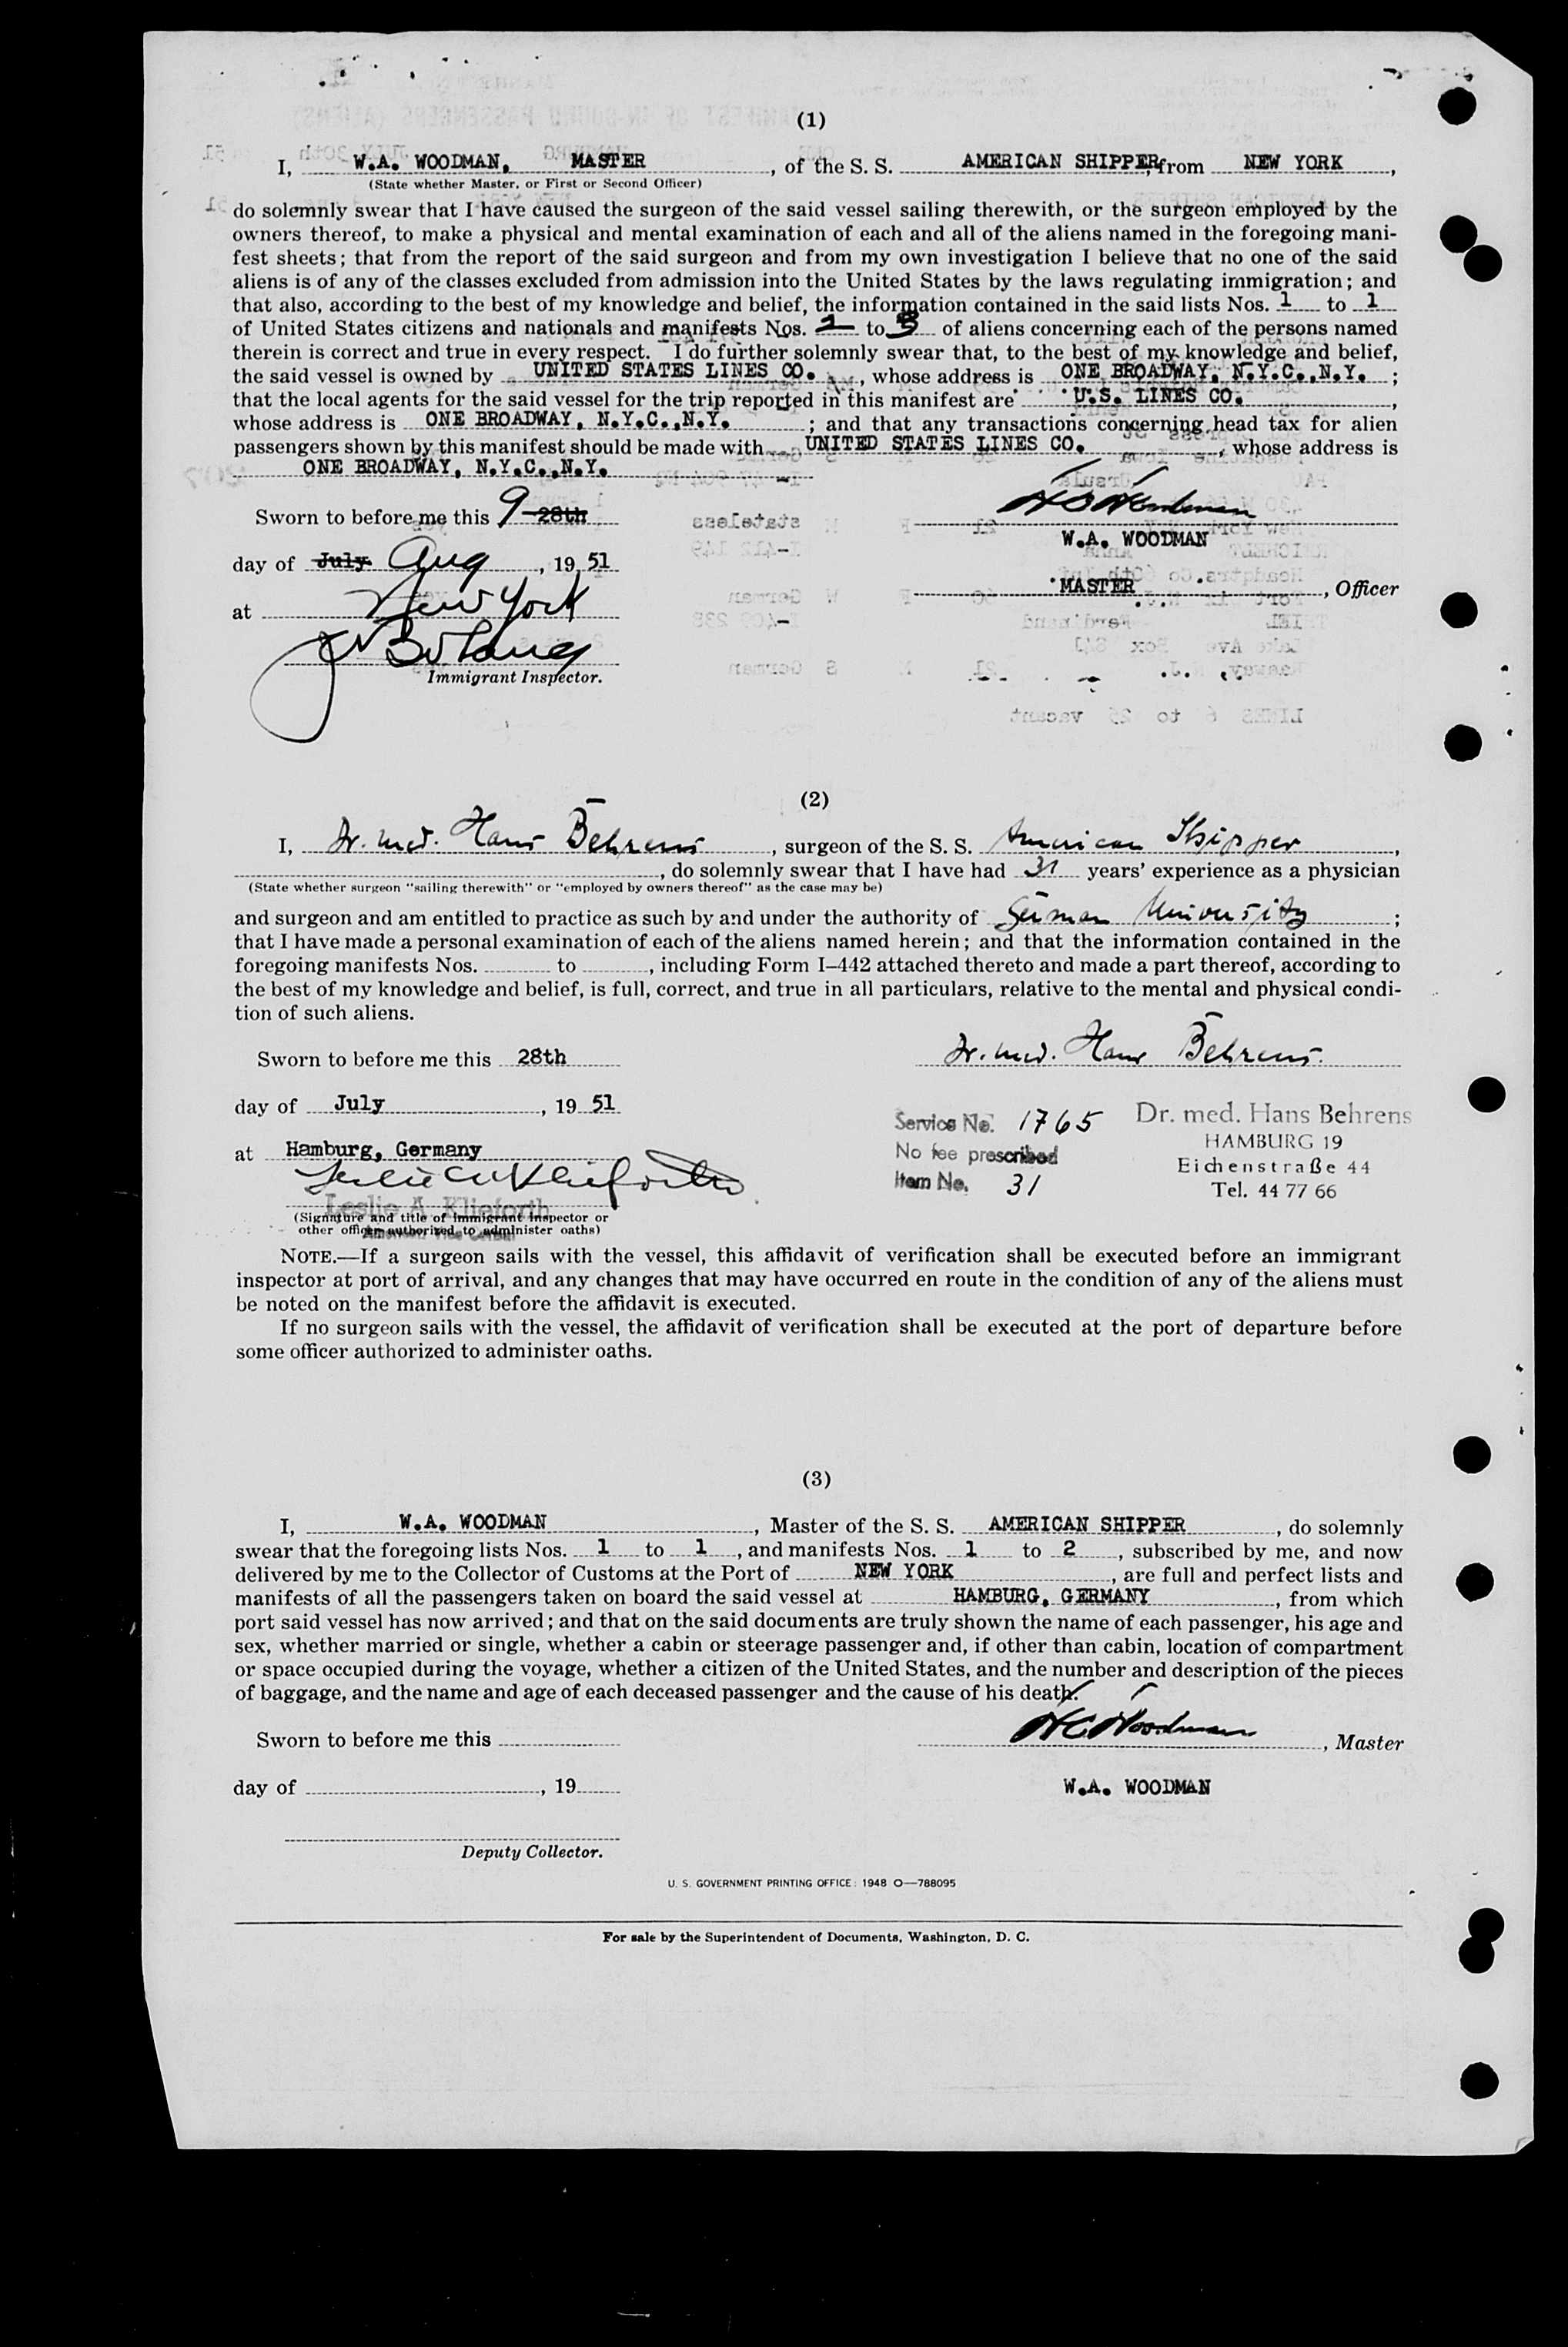 (1)
I, W.A. WOODMAN, MASTER, of the S. S. AMERICAN SHIPPER, from NEW YORK,
(State whether Master, or First or Second Officer)
do solemnly swear that I have caused the surgeon of the said vessel sailing therewith, or the surgeon employed by the
owners thereof, to make a physical and mental examination of each and all of the aliens named in the foregoing mani-
fest sheets; that from the report of the said surgeon and from my own investigation I believe that no one of the said
aliens is of any of the classes excluded from admission into the United States by the laws regulating immigration; and
that also, according to the best of my knowledge and belief, the information contained in the said lists Nos. 1 to 1
of United States citizens and nationals and manifests Nos. 2 to 3 of aliens concerning each of the persons named
therein is correct and true in every respect. I do further solemnly swear that, to the best of my knowledge and belief,
the said vessel is owned by UNITED STATES LINES CO., whose address is ONE BROADWAY, N.Y.C.,N.Y. ;
that the local agents for the said vessel for the trip reported in this manifest are U.S. LINES CO.,
whose address is ONE BROADWAY, N.Y.C.,N.Y. ; and that any transactions concerning head tax for alien
passengers shown by this manifest should be made with UNITED STATES LINES CO., whose address is
ONE BROADWAY, N.Y.C.,N.Y.
Sworn to before me this 9 28th
W.A. WOODMAN
day of July Aug, 19 51
MASTER, Officer
at New York
Immigrant Inspector.
LINES 6 to 25 vacant
(2)
I, Dr. med. Hans Behrens, surgeon of the S. S. American Shipper,
, do solemnly swear that I have had 31 years' experience as a physician
(State whether surgeon "sailing therewith" or "employed by owners thereof" as the case may be)
and surgeon and am entitled to practice as such by and under the authority of German University ;
that I have made a personal examination of each of the aliens named herein; and that the information contained in the
foregoing manifests Nos. to , including Form I–442 attached thereto and made a part thereof, according to
the best of my knowledge and belief, is full, correct, and true in all particulars, relative to the mental and physical condi-
tion of such aliens.
Sworn to before me this 28th
Dr. med. Hans Behrens.
day of July, 19 51
Service No. 1765
No fee prescribed
Item No. 31
Dr. med. Hans Behrens
HAMBURG 19
Eichenstraße 44
Tel. 44 77 66
at Hamburg, Germany
Leslie A. Klieforth
(Signature and title of immigrant inspector or
other officer authorized to administer oaths)
NOTE.—If a surgeon sails with the vessel, this affidavit of verification shall be executed before an immigrant
inspector at port of arrival, and any changes that may have occurred en route in the condition of any of the aliens must
be noted on the manifest before the affidavit is executed.
If no surgeon sails with the vessel, the affidavit of verification shall be executed at the port of departure before
some officer authorized to administer oaths.
(3)
I, W.A. WOODMAN, Master of the S. S. AMERICAN SHIPPER, do solemnly
swear that the foregoing lists Nos. 1 to 1, and manifests Nos. 1 to 2, subscribed by me, and now
delivered by me to the Collector of Customs at the Port of NEW YORK, are full and perfect lists and
manifests of all the passengers taken on board the said vessel at HAMBURG, GERMANY, from which
port said vessel has now arrived; and that on the said documents are truly shown the name of each passenger, his age and
sex, whether married or single, whether a cabin or steerage passenger and, if other than cabin, location of compartment
or space occupied during the voyage, whether a citizen of the United States, and the number and description of the pieces
of baggage, and the name and age of each deceased passenger and the cause of his death.
Sworn to before me this
W A Woodman, Master
day of , 19
W.A. WOODMAN
Deputy Collector.
U. S. GOVERNMENT PRINTING OFFICE: 1948 O—788095
For sale by the Superintendent of Documents, Washington, D. C.